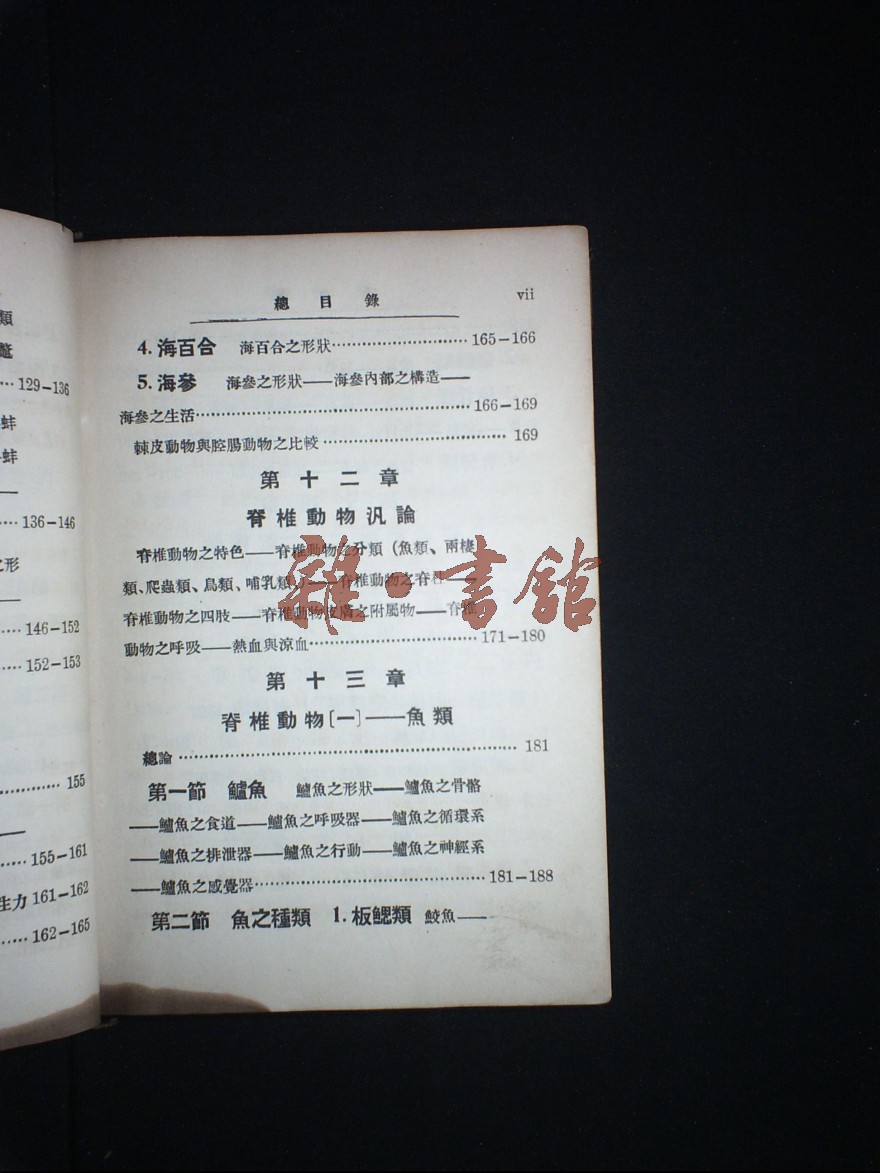 類
129–136
蚌
蚌
136–146
形
146–152
152–153
155
155–161
生力 161–162
162–165
總目錄 vii
4. 海百合 海百合之形狀……………………165–166
5. 海參 海參之形狀——海參內部之構造——
海參之生活……………………166–169
棘皮動物與腔腸動物之比較……………………169
第十二章
脊椎動物汎論
脊椎動物之特色——脊椎動物之分類（魚類、兩棲
類、爬蟲類、鳥類、哺乳類）——脊椎動物之脊柱——
脊椎動物之四肢——脊椎動物皮膚之附屬物——脊椎
動物之呼吸——熱血與涼血……………………171–180
第十三章
脊椎動物〔一〕——魚類
總論……………………181
第一節 鱸魚 鱸魚之形狀——鱸魚之骨骼
——鱸魚之食道——鱸魚之呼吸器——鱸魚之循環系
——鱸魚之排泄器——鱸魚之行動——鱸魚之神經系
——鱸魚之感覺器……………………181–188
第二節 魚之種類 1. 板鰓類 鮫魚——
雜·書館